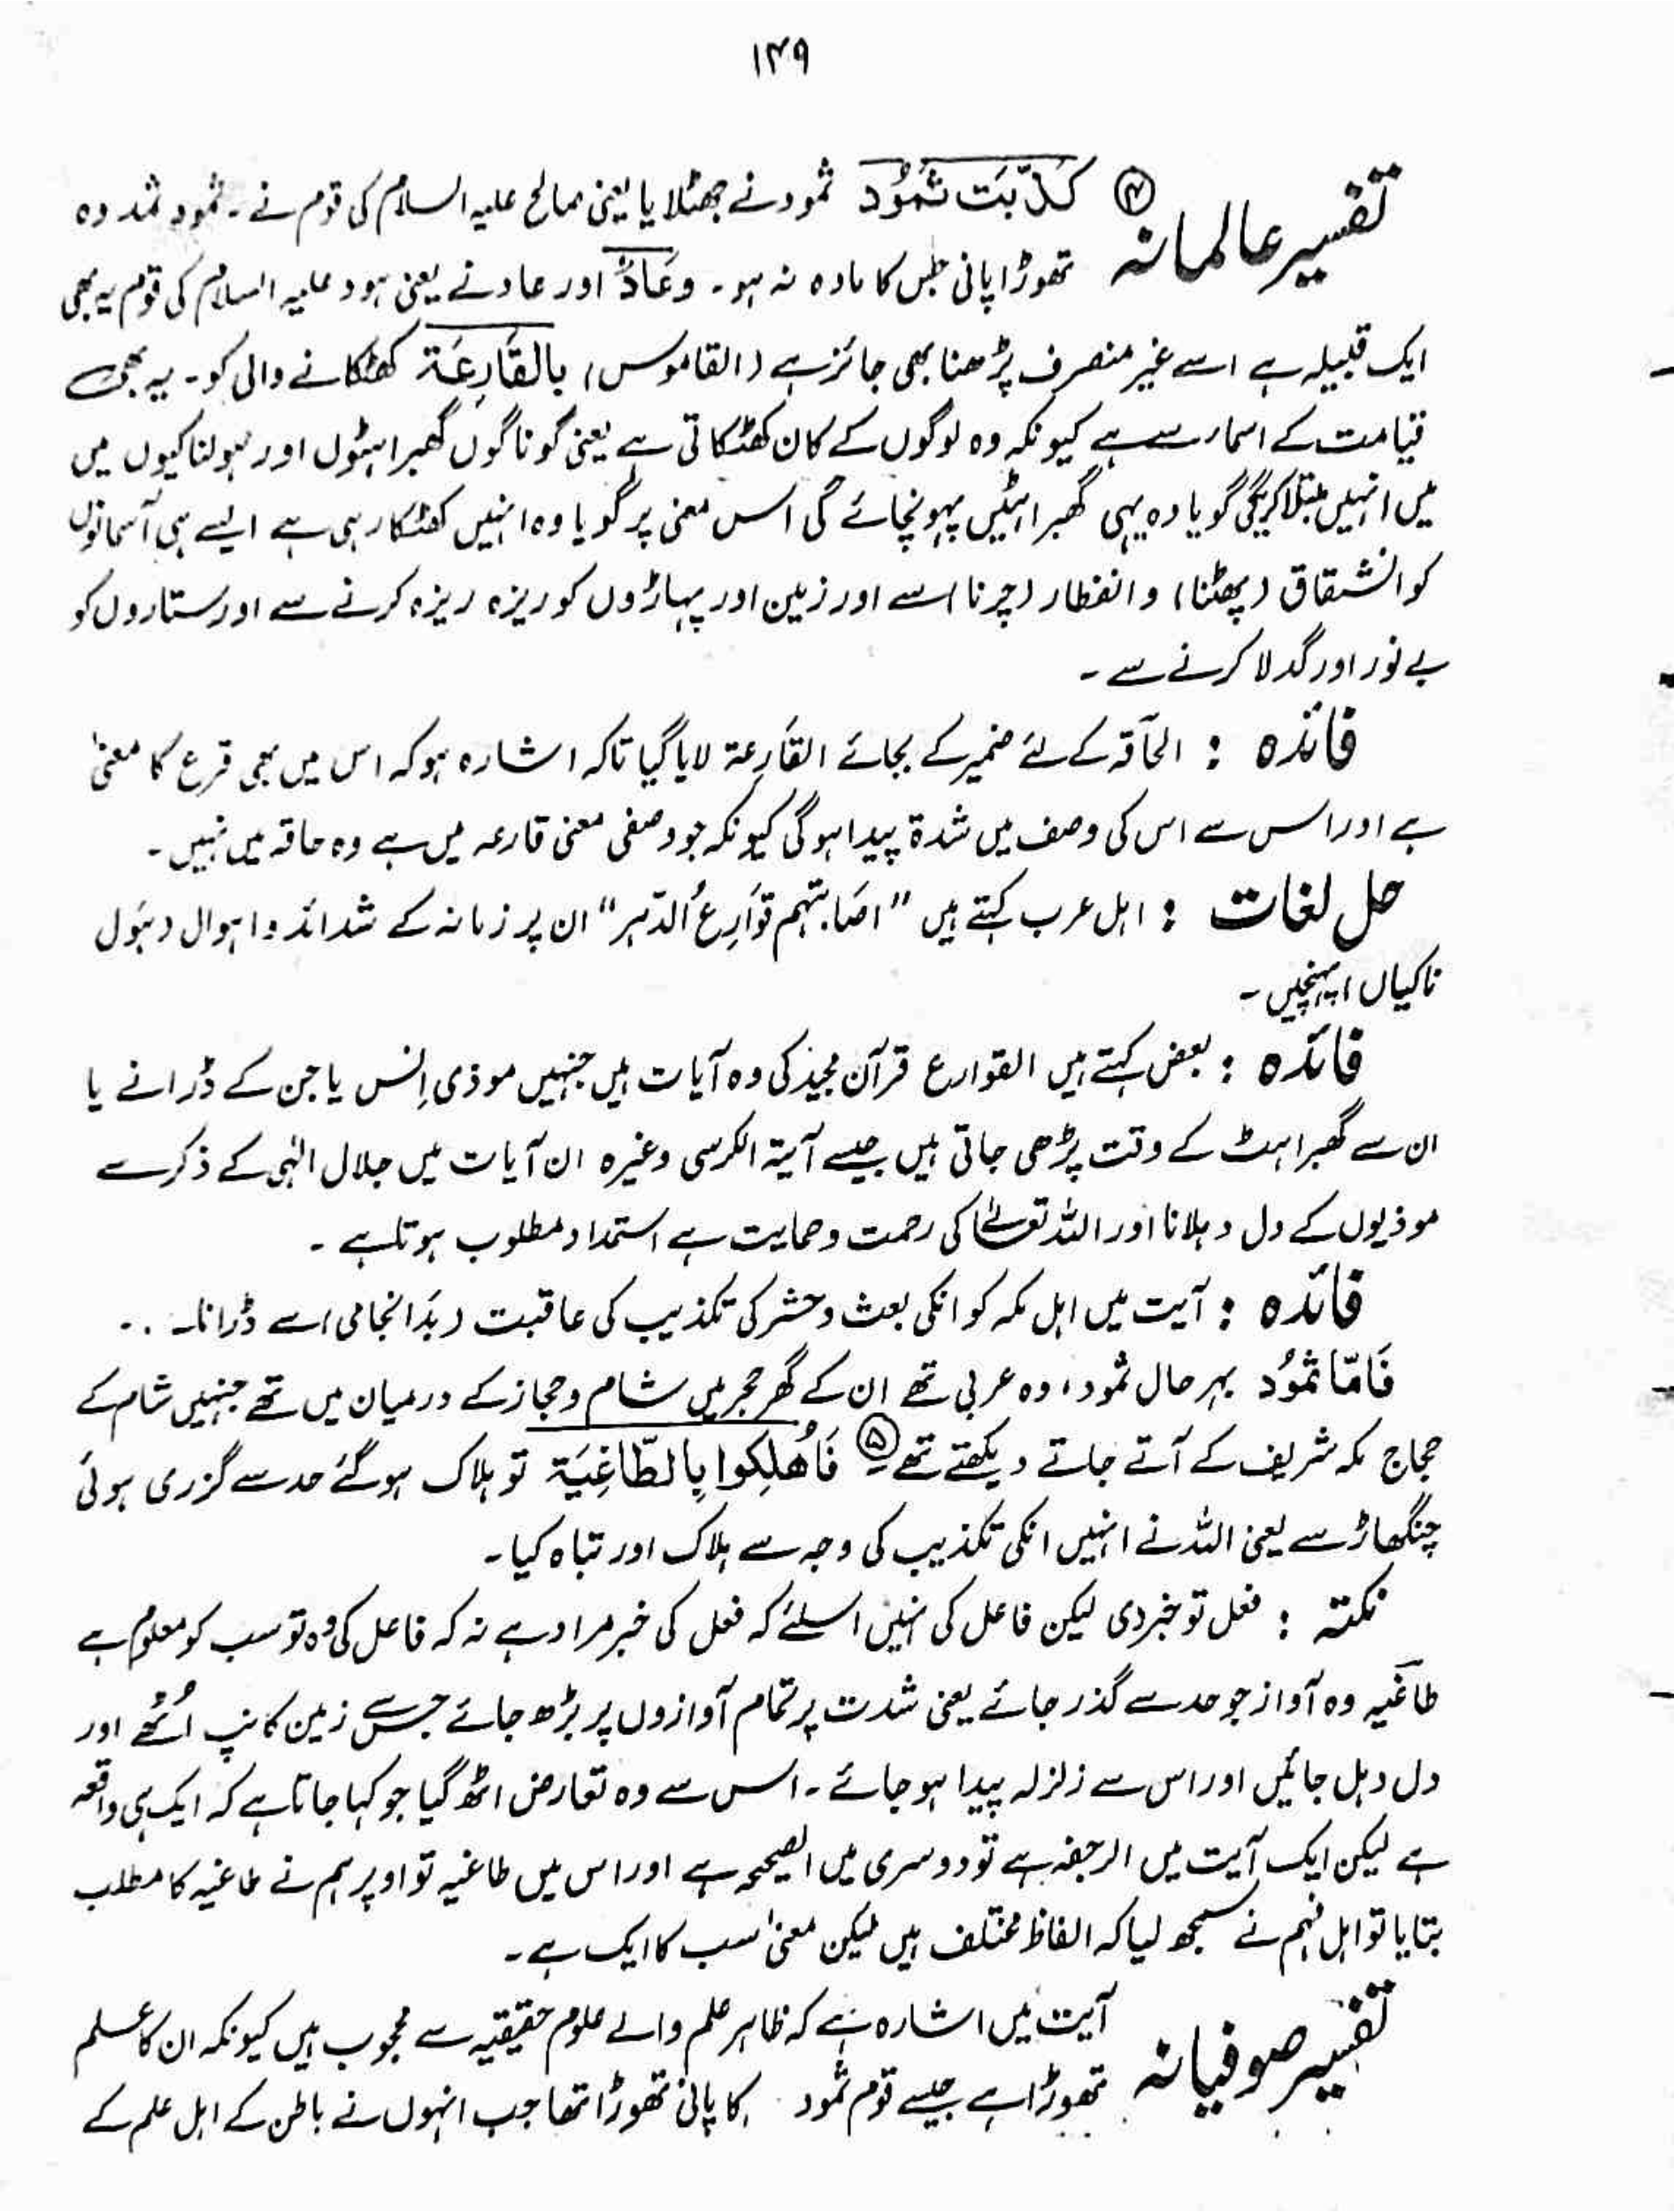 ۱۴۹
تفسیر عالمانہ ④ كَذَّبَت ثَمُوُد ثمود نے جھٹلایا یعنی صالح علیہ السلام کی قوم نے۔ ثمود ثمد وہ
تھوڑا پانی جس کا مادہ نہ ہو۔ وعَادٌ اور عاد نے یعنی ہود علیہ السلام کی قوم یہ بھی
ایک قبیلہ ہے اسے غیر منصرف پڑھنا بھی جائز ہے (القاموس) بالقَارِعَۃ کھٹکانے والی کو۔ یہ بھی
قیامت کے اسمار سے ہے کیونکہ وہ لوگوں کے کان کھٹکاتی ہے یعنی گوناگوں گھبراہٹوں اور ہولناکیوں میں
میں انہیں مبتلا کریگی گویا وہ یہی گھبراہٹیں پہونچائے گی اس معنی پر گویا وہ انہیں کھٹکا رہی ہے ایسے ہی آسمانوں
کو انشقاق (پھٹنا) و انفطار (چرنا) سے اور زمین اور پہاڑوں کو ریزہ ریزہ کرنے سے اور ستاروں کو
بے نور اور گدلا کرنے سے ۔
فائدہ : الحآقہ کے لئے ضمیر کے بجائے القَارِعۃ لایا گیا تاکہ اشارہ ہو کہ اس میں بھی قرع کا معنیٰ
ہے اور اس سے اس کی وصف میں شدۃ پیدا ہوگی کیونکہ جو وصفی معنی قارعہ میں ہے وہ حاقہ میں نہیں ۔
حل لغات : اہل عرب کہتے ہیں "اصَابتہم قوَارِعُ الدّہر" ان پر زمانہ کے شدائد و اہوال (ہول
ناکیاں) پہنچیں ۔
فائدہ : بعض کہتے ہیں القوارع قرآن مجید کی وہ آیات ہیں جنہیں موذی اِنس یا جن کے ڈرانے یا
ان سے گھبراہٹ کے وقت پڑھی جاتی ہیں جیسے آیۃ الکرسی وغیرہ ان آیات میں جلال الٰہی کے ذکر سے
موذیوں کے دل دہلانا اور اللہ تعالےٰ کی رحمت و حمایت سے استمداد مطلوب ہوتا ہے ۔
فائدہ : آیت میں اہل مکہ کو انکی بعث و حشر کی تکذیب کی عاقبت (بدَانجامی) سے ڈرانا ۔
فَامّا ثمُوُد بہر حال ثمود، وہ عربی تھے ان کے گھر حجر میں شام و حجاز کے درمیان میں تھے جنہیں شام کے
حجاج مکہ شریف کے آتے جاتے دیکھتے تھے ⑤ فَاُھلِكوا بِالطّاغِیَۃ تو ہلاک ہوگئے حد سے گزری ہوئی
چنگھاڑ سے یعنی اللہ نے انہیں انکی تکذیب کی وجہ سے ہلاک اور تباہ کیا ۔
نکتہ : فعل تو خبر دی لیکن فاعل کی نہیں اسلئے کہ فعل کی خبر مراد ہے نہ کہ فاعل کی وہ تو سب کو معلوم ہے
طاغیہ وہ آواز جو حد سے گذر جائے یعنی شدت پر تمام آوازوں پر بڑھ جائے جس سے زمین کانپ اُٹھے اور
دل دہل جائیں اور اس سے زلزلہ پیدا ہو جائے ۔ اس سے وہ تعارض اٹھ گیا جو کہا جاتا ہے کہ ایک ہی واقعہ
ہے لیکن ایک آیت میں الرجفہ ہے تو دوسری میں الصیحہ ہے اور اس میں طاغیہ تو اوپر ہم نے طاغیہ کا مطلب
بتایا تو اہل فہم نے سمجھ لیا کہ الفاظ مختلف ہیں لیکن معنیٰ سب کا ایک ہے ۔
تفسیر صوفیانہ آیت میں اشارہ ہے کہ ظاہر علم والے علوم حقیقیہ سے محجوب ہیں کیونکہ ان کا علم
تھوڑا ہے جیسے قوم ثمود کا پانی تھوڑا تھا جب انہوں نے باطن کے اہل علم کے